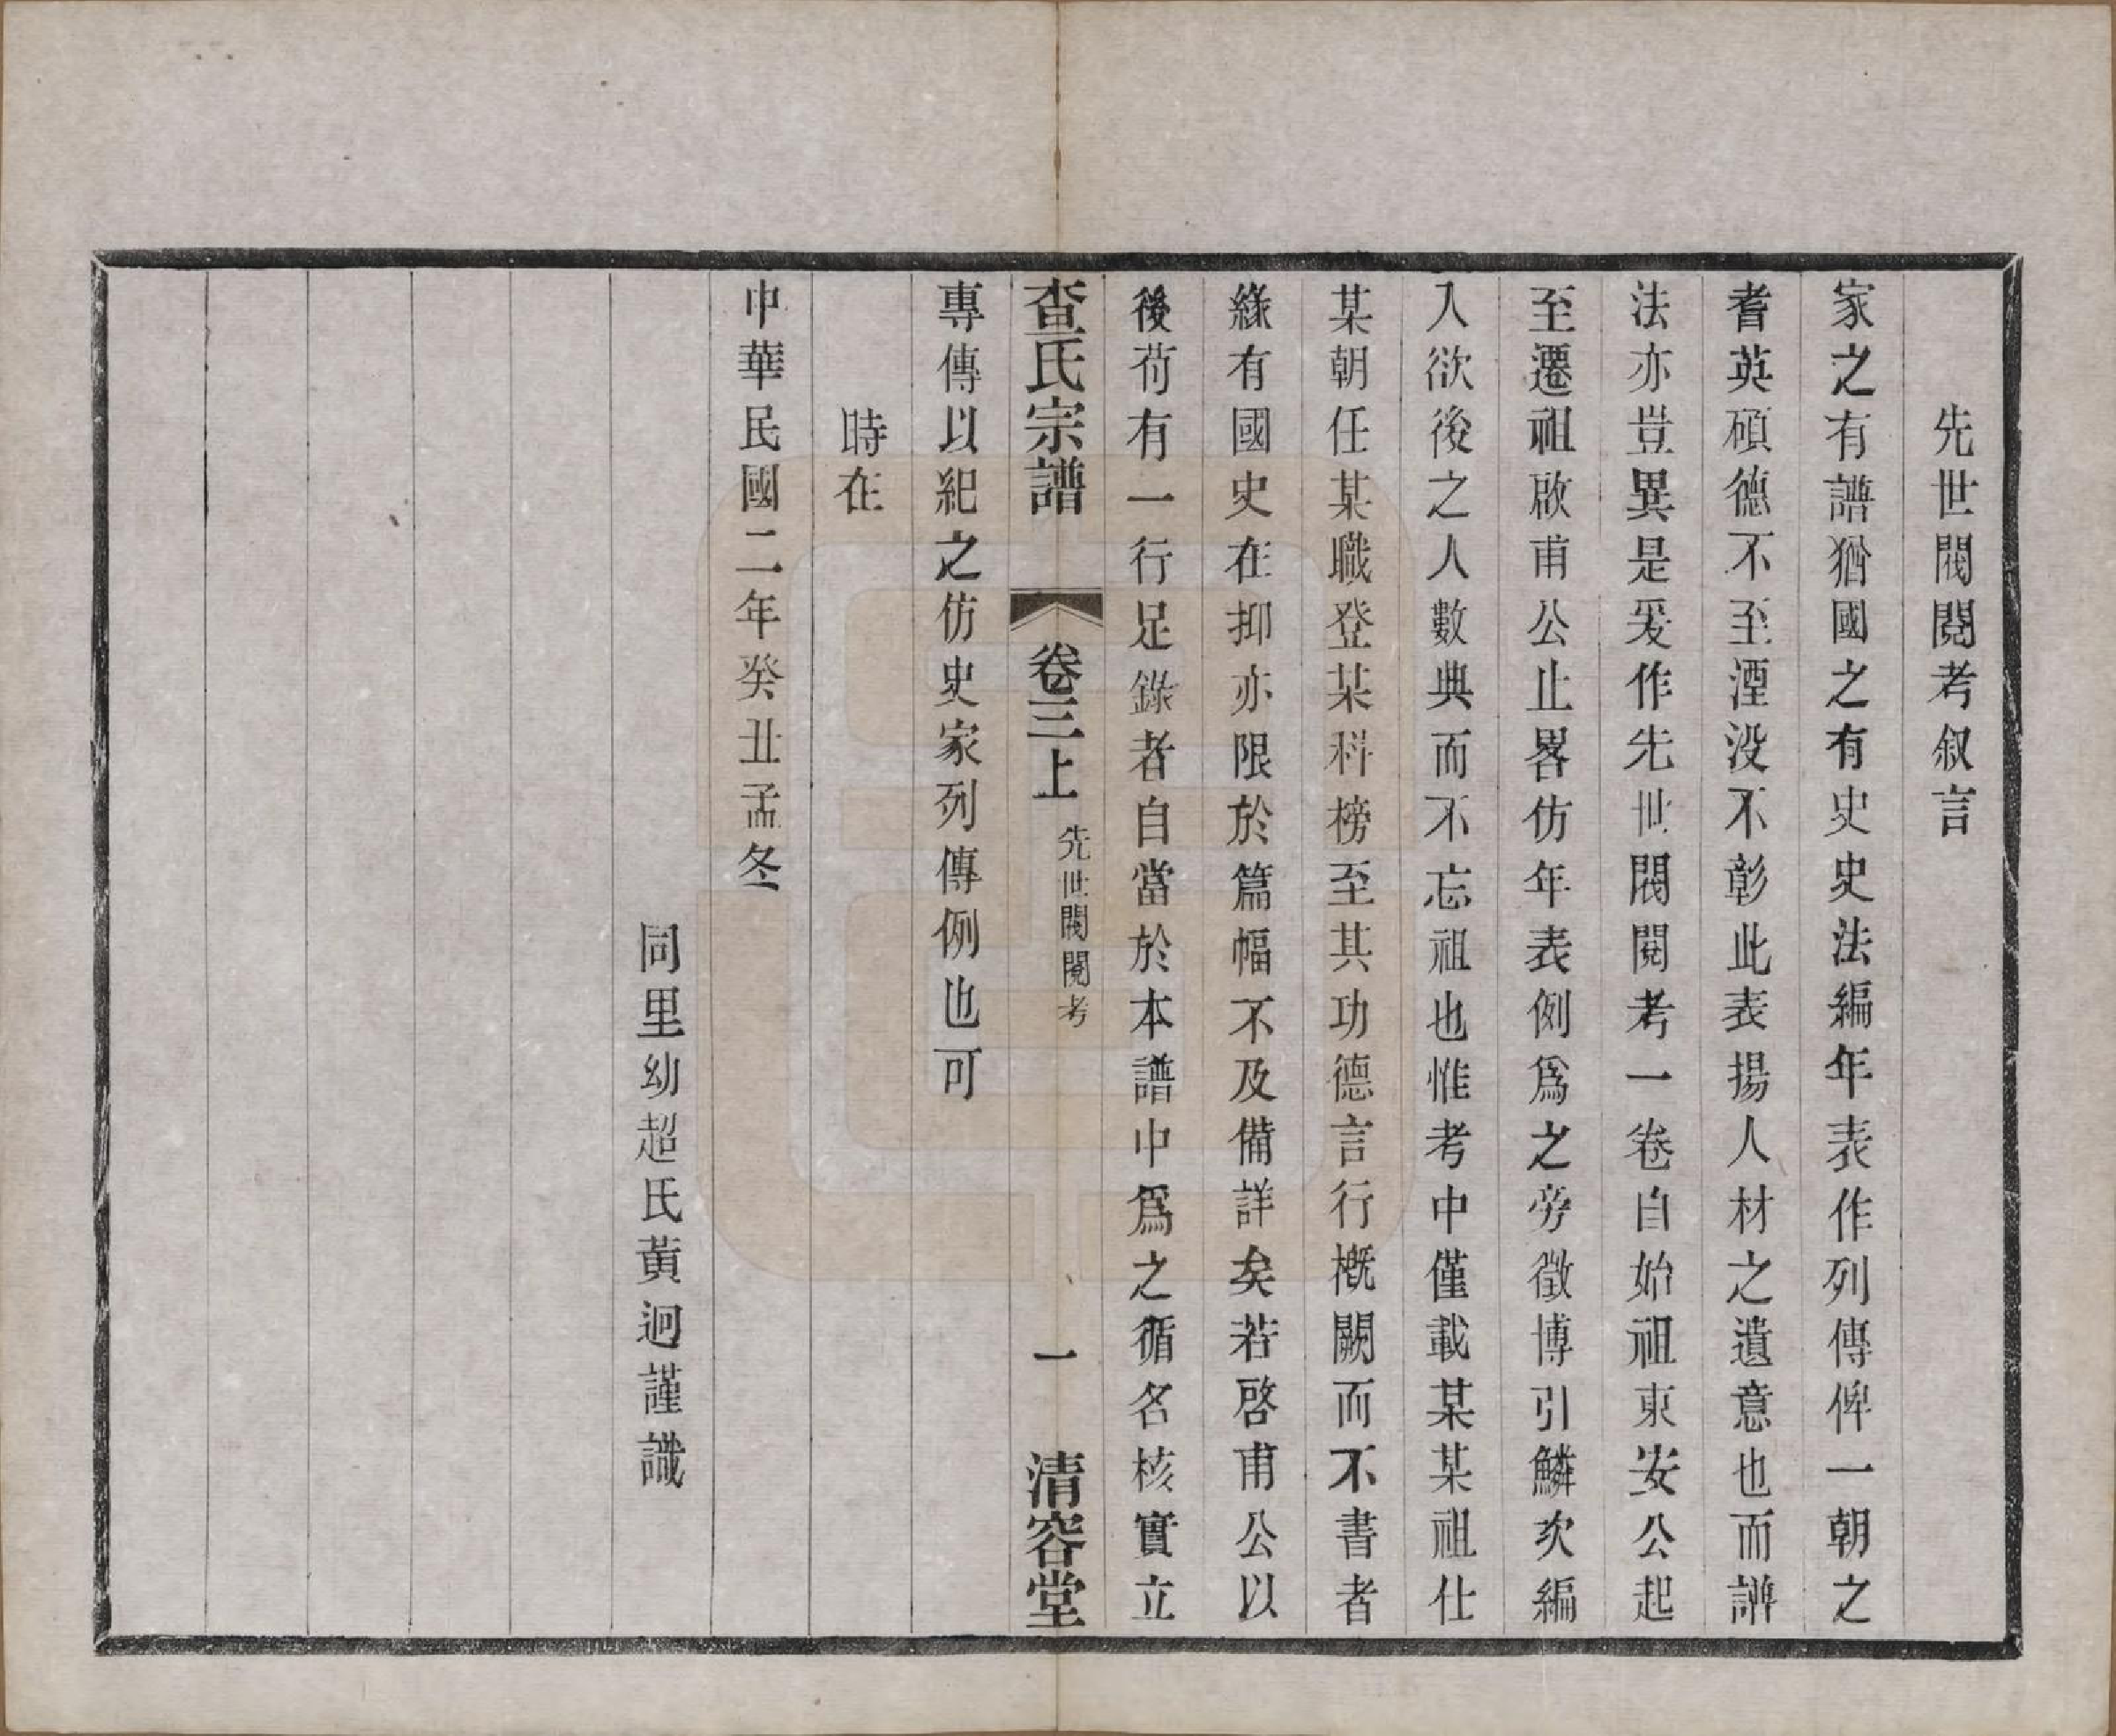 先世閥閱考叙言
家之有譜猶國之有史史法編年表作列傳俾一朝之
耆英碩德不至湮没不彰此表揚人材之遺意也而譜
法亦豈異是爰作先世閥閱考一卷自始祖東安公起
至遷祖啟甫公止畧仿年表例爲之旁徵博引鱗次編
入欲後之人數典而不忘祖也惟考中僅載某某祖仕
某朝任某職登某科榜至其功德言行概闕而不書者
緣有國史在抑亦限於篇幅不及備詳矣若啓甫公以
後苟有一行足錄者自當於本譜中爲之循名核實立
查氏宗譜 卷三上 先世閥閱考 一 清容堂
專傳以紀之仿史家列傳例也可
時在
中華民國二年癸丑孟冬
同里幼超氏黃迥謹識